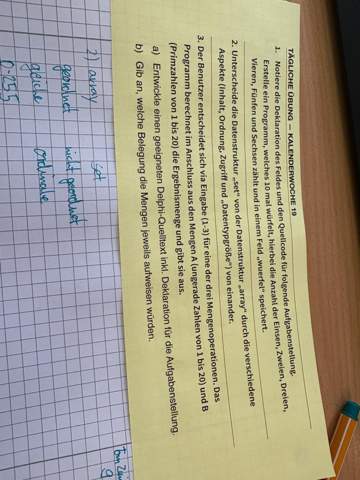 TÄGLICHE ÜBUNG – KALENDERWOCHE 19
1. Notiere die Deklaration des Feldes und den Quellcode für folgende Aufgabenstellung.
Erstelle ein Programm, welches 10 mal würfelt, hierbei die Anzahl der Einsen, Zweien, Dreien,
Vieren, Fünfen und Sechsen zählt und in einem Feld „wuerfel" speichert.
2. Unterscheide die Datenstruktur „set" von der Datenstruktur „array" durch die verschiedene
Aspekte (Inhalt, Ordnung, Zugriff und „Datentypgröße") von einander.
3. Der Benutzer entscheidet sich via Eingabe (1-3) für eine der drei Mengenoperationen. Das
Programm berechnet im Anschluss aus den Mengen A (ungerade Zahlen von 1 bis 20) und B
(Primzahlen von 1 bis 20) die Ergebnismenge und gibt sie aus.
a) Entwickle einen geeigneten Delphi-Quelltext inkl. Deklaration für die Aufgabenstellung.
b) Gib an, welche Belegung die Mengen jeweils aufweisen würden.
2) array set
geordnet nicht geordnet
gleiche ordinale
0-255